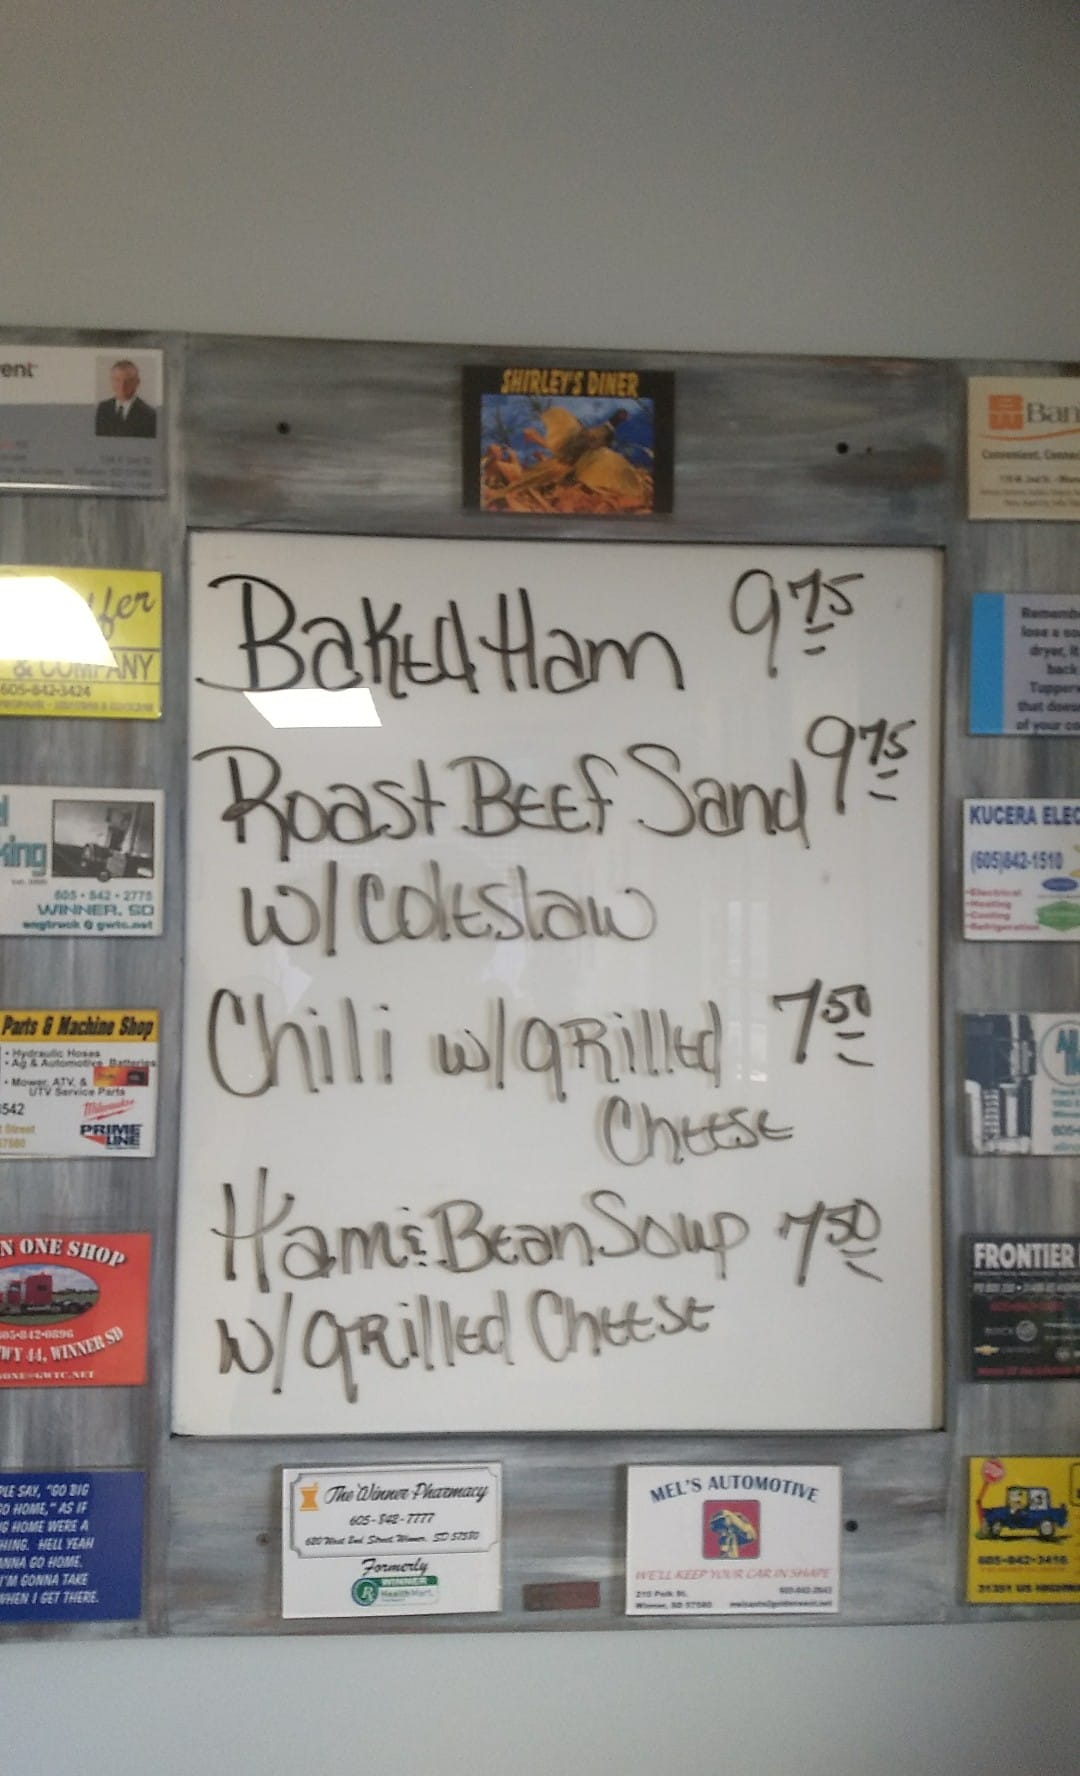 vent
SHIRLEY'S DINER
Convenient,
& COMPANY
605-842-3424
Baked Ham 9 75
Roast Beef Sand 9 75
w/ Coleslaw
Chili w/ grilled 7 50
Cheese
Ham & Bean Soup 7 50
w/ grilled Cheese
605 • 842 • 2775
WINNER, SD
engtruck @ gwtc.net
Parts & Machine Shop
• Hydraulic Hoses
• Ag & Automotive Batteries
• Mower, ATV, &
UTV Service Parts
Milwaukee
PRIME
LINE
N ONE SHOP
605-842-0896
WY 44, WINNER SD
ONE@GWTC.NET
PLE SAY, "GO BIG
O HOME," AS IF
G HOME WERE A
HING. HELL YEAH
ANNA GO HOME.
I'M GONNA TAKE
WHEN I GET THERE.
The Winner Pharmacy
605-842-7777
620 West 2nd Street Winner, SD 57580
Formerly
WINNER
HealthMart
MEL'S AUTOMOTIVE
WE'LL KEEP YOUR CAR IN SHAPE
210 Park St.
Winner, SD 57580
lose a so
dryer, it
back
Tupperw
that does
of your co
KUCERA ELEC
(605)842-1510
•Electrical
•Heating
•Cooling
•Refrigeration
FRONTIER
BUICK
605-842-3416